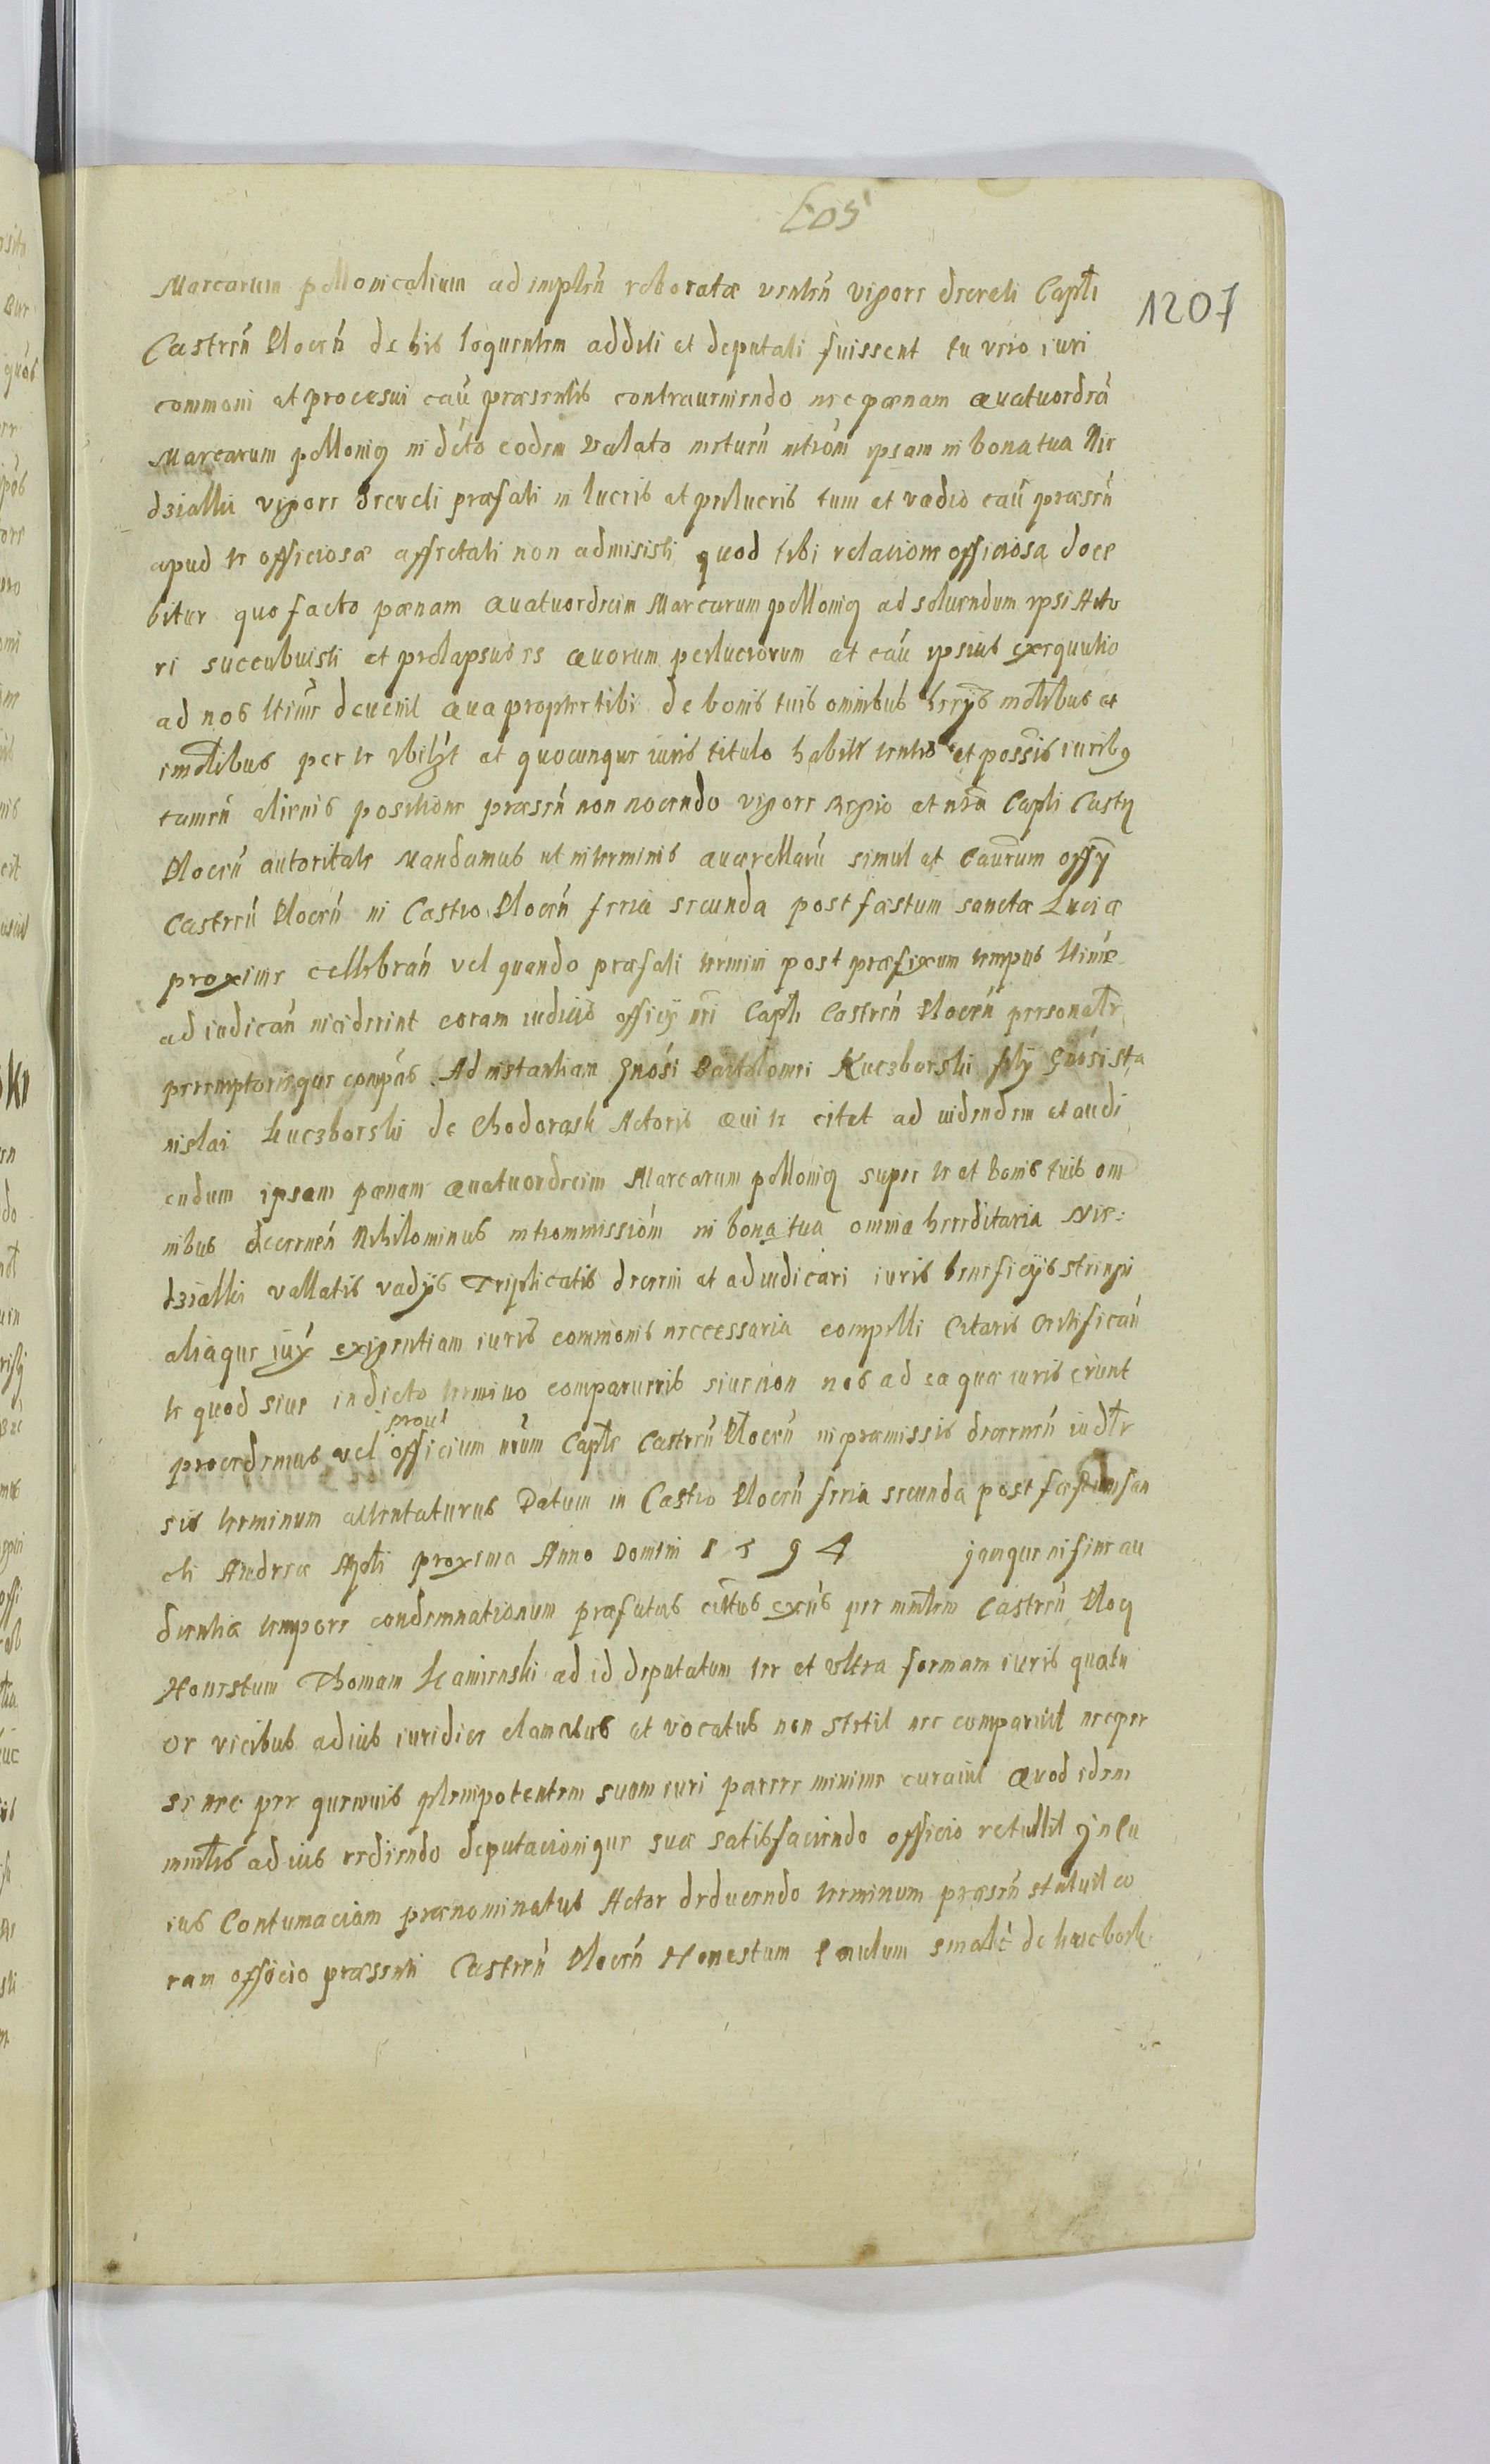 605
1207
Marcarum pollonicalium ad implen roboratæ venten vigore decreti Capti
Castren Plocen de his loquentem additi et deputati fuissent tu vero iuri
communi et procesui cau præsentis contraueniendo nec pænam quatuordeci
Marcarum polloniq in dicto eodem valato metuen introm ipsam in bona tua Nie
dzialki vigore decreti præfati in lucris et perlucris tum et vadio cau præsen
apud te officiosæ affectati non admisisti quod tibi relacione officiosa doce
bitur quo facto pænam quatuordecim Marcarum polloniq ad soluendum ypsi Acto
ri succubuisti et prolapsus es quorum perlucrorum et cau ipsius exequutio
ad nos ltime deuenit qua propter tibi de bonis tuis omnibus herijs motlibus et
imotlibus per te vbilzt et quocunque iuris titulo habitis tentis et possis iuribq
tamen alienis positione præsen non nocendo vigore regio et nra Capti Castq
Plocen autoritate Mandamus ut in terminis quærellaru simul et Caurum offy
Castren Plocen in Castro Plocen feria secunda post fæstum sanctæ Luciæ
proxime cellebran vel quando præfati termini post præfixum tempus ltime
ad iudican inciderint coram iudicio officij nri Capti Castren Plocen personatr
peremptorieque compas Ad instantiam Gnosi Bartolomei Kuczborski filij Gnosi Sta
nislai Kuczborski de Chodorask Actoris qui te citat ad uidendem et audi
endum ipsam pænam quatuordecim Marcarum polloniq super te et bonis tuis om
nibus decernen Nihilominus intrommissiom in bona tua omnia hereditaria Nie:
dzialki vallatis vadijs Triplicatis decerni et adiudicari iuris beneficijs stringi
aliaque iux exigentiam iuris commonis neccessaria compelli Citaris Certifican
te quod siue in dicto termino comparueris siue non nos ad ea quæ iuris erunt
procedemus vel prout officium nrum Capte Castren Plocen in præmissis decernen iudtr
sit terminum attentaturus Datum in Castro Plocen feria secunda post fæstum san
cti Andreæ Apti proxima Anno Domini 1594 jamque in fine au
dientiæ tempore condemnationum præfatus cittus exns per mntlem Castren Ploq
Honestum Thomam Kamienski ad id deputatum ter et vltra formam iuris quatu
or vicibus ad ius iuridice clamatus et vocatus non stetit nec comparuit nec per
se nec per quemuis plenipotentem suom iuri parere minime curauit Quod idem
mntlis ad ius rediendo deputacionique suæ satisfaciendo officio retullit jn cu
ius Contumaciam prænominatus Actor deducendo terminum præsen statuit co
ram officio præsenti Castren Plocen Honestum Paulum de